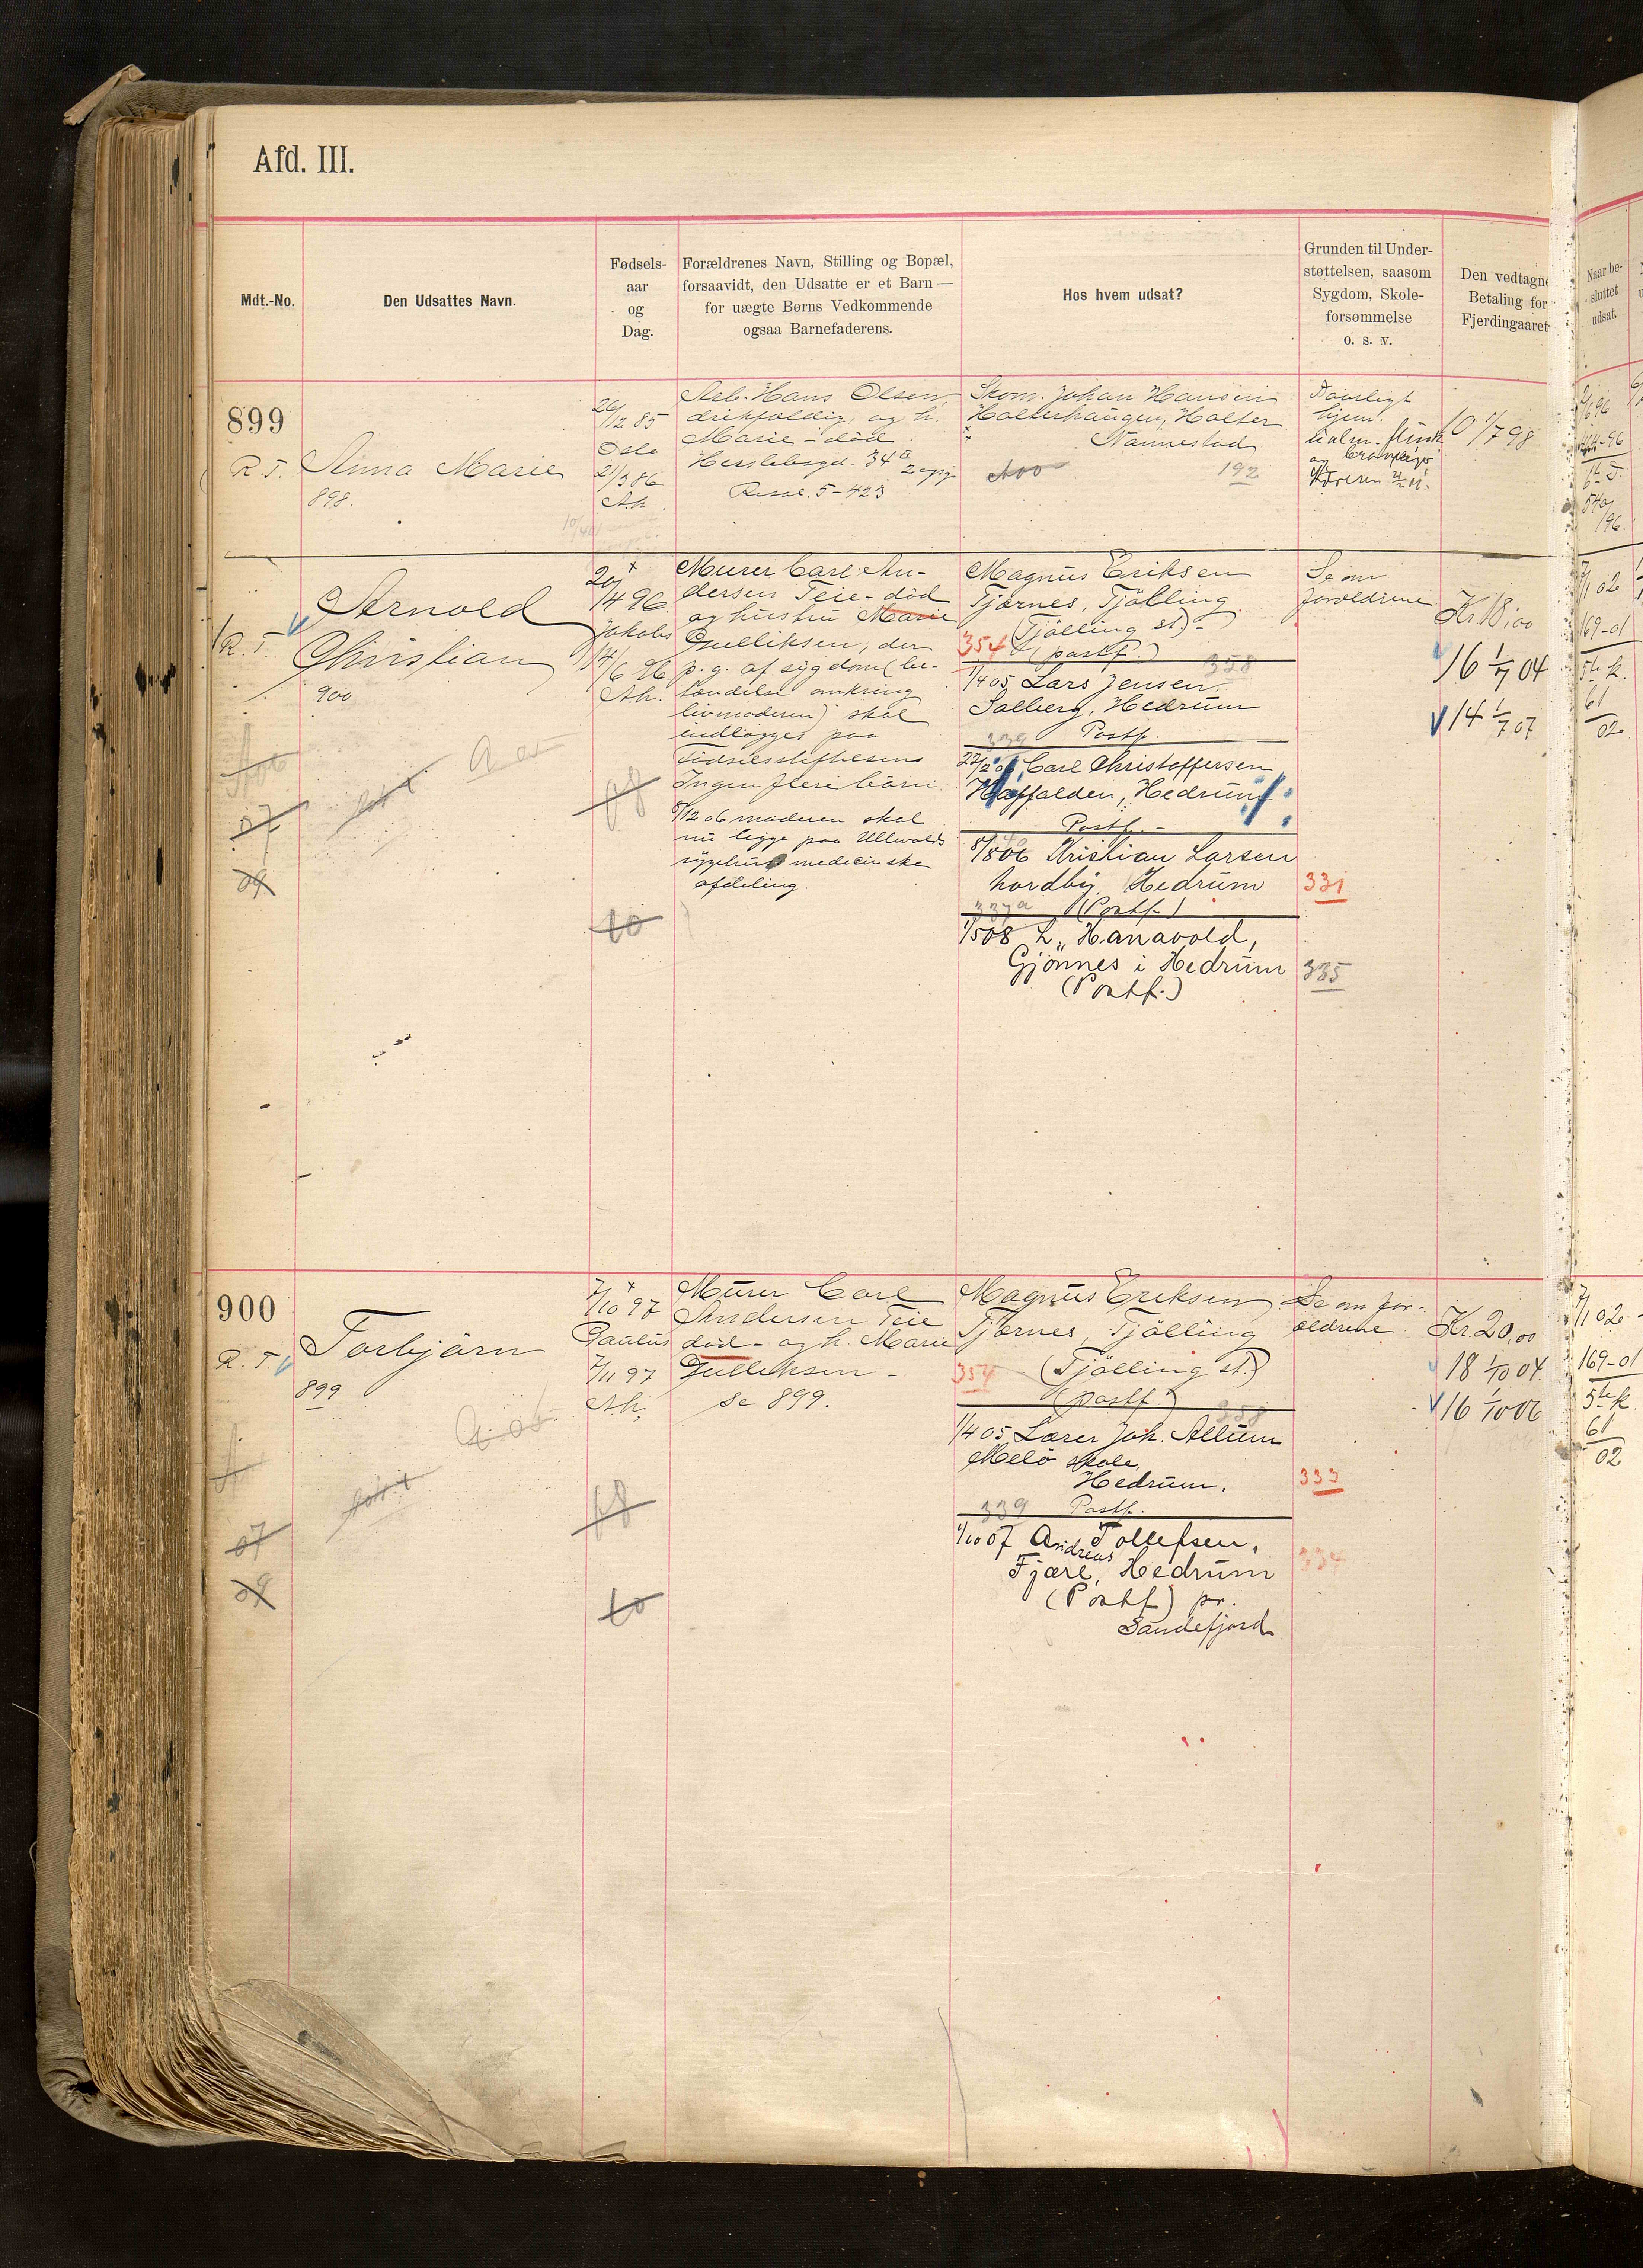 Afd. III.
Mdt.-No.
Den Udsattes Navn.
Fødsels-
aar
og
Dag.
Forældrenes Navn, Stilling og Bopæl,
forsaavidt, den Udsatte er et Barn —
for uægte Børns Vedkommende
ogsaa Barnefaderens.
Hos hvem udsat?
Grunden til Under-
støttelsen, saasom
Sygdom, Skole-
forsømmelse
o. s. v.
Den vedtagne
Betaling for
Fjerdingaaret
Naar be-
sluttet
udsat.
899
R. T.
Anna Marie
898.
26/12 85
Oslo
21/3 86
Ah.
Arb. Hans Olsen,
drikfældig, og h.
Marie - død
34 II
Skom. Johan Hansen
Holterhaugen, Holter
Nannestad
192
Daarligt
hjem.
10 1/7 98
R. T.
Arnold
Christian
900
20/4 96
Jakobs
14/6 96
Ah.
Murer Carl An-
dersen Teie - død
og hustru Marie
Gulliksen, der
p. g. af sygdom (be-
tændelse omkring
livmoderen) skal
indlægges paa
Fødselsstiftelsen.
Ingen flere børn.
8/12 06 moderen skal
nu ligge paa Ullevolds
sygehus medicinske
afdeling.
Magnus Eriksen
Tjørnes, Tjølling
(Tjølling st.) -
354 (postf.)
358
1/4 05 Lars Jensen
Solberg, Hedrum
339 Postf.
22/2 06 Carl Christoffersen
Haffalden, Hedrum
Postf. -
8/8 06 Kristian Larsen
Nordby, Hedrum
331
(Postf.)
1/5 08 L. Hanavold,
Gjønnes i Hedrum
335
(Postf.)
Se om
forældrene
Kr. 18,00
16 1/7 04
14 1/7 07
1/1 02
169-01
5te k.
61
02
07
09
08
10
900
R. T.
Torbjørn
899
7/10 97
Paulus
7/11 97
Ah.
Murer Carl
Andersen Teie
død - og h. Marie
Gulliksen -
Se 899.
Magnus Eriksen
Tjørnes, Tjølling
(Tjølling st.)
354
(postf.)
358
1/4 05 Lærer Joh. Allum
Melø skole,
Hedrum.
333
339 Postf.
1/10 07 Andreas Tollefsen,
Fjære, Hedrum
334
(Postf) pr.
Sandefjord
Se om for-
ældrene
Kr. 20,00
18 1/10 04.
16 1/10 06
1/1 02
169-01
5te k
61
02
07
09
08
10